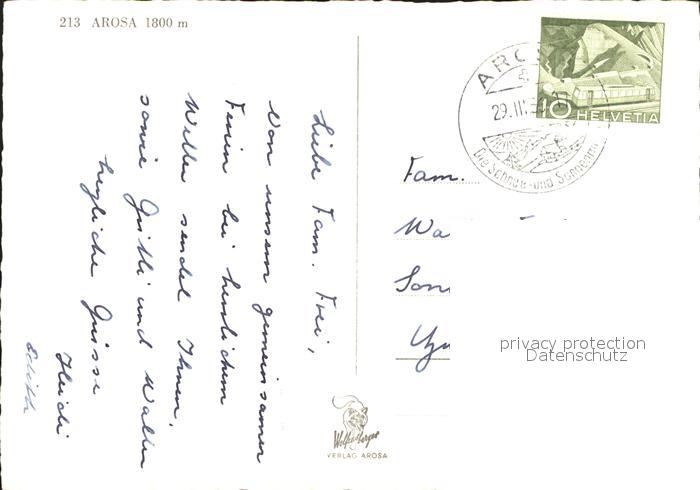 213 AROSA 1800 m
Liebe Fam. Frei,
Von unsern gemeinsamen
Ferien bei herrlichem
Wetter sendet Ihnen,
sowie Gritli und Walter
herzliche Grüsse
Heidi
Edith
VERLAG AROSA
ARO
29.II
Die Schnee- und Sonnen
10 HELVETIA
Fam.
Wa
Son
privacy protection
Datenschutz